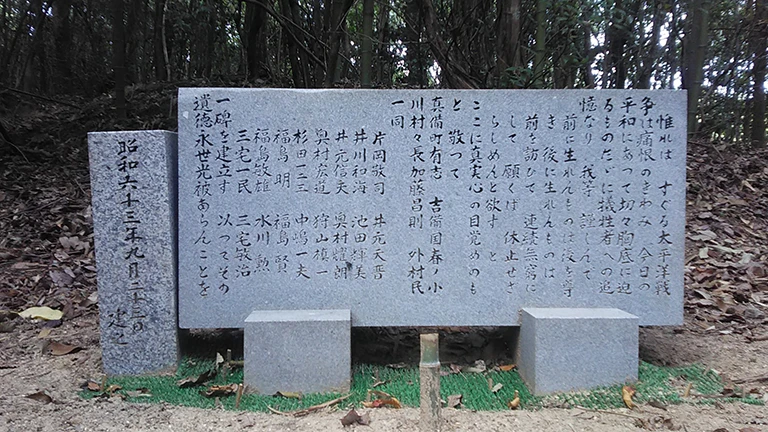 惟れば すぐる太平洋戦
争は痛恨のきわみ 今日の
平和にあって切々胸底に迫
るものただに犠牲者への追
憶なり 我等 謹しんで
前に生れんものは後を導
き 後に生れんものは
前を訪ひて 連続無窮に
して 願くば 休止せざ
らしめんと欲す と
ここに真実心の目覚めのも
と 敬つて
真備町有志 吉備国春ノ小
川村々長加藤昌則 外村民
一同
片岡敬司 井元天晋
井川和海 池田輝美
井元信夫 奥村耀朗
奥村宏道 狩山槙一
杉田一三 中嶋一夫
福島明 福島賢
福島敬雄 水川勲
三宅一民 三宅敬治
一碑を建立す 以つてその
遺徳永世光被あらんことを
昭和六十三年九月二十三日
建之